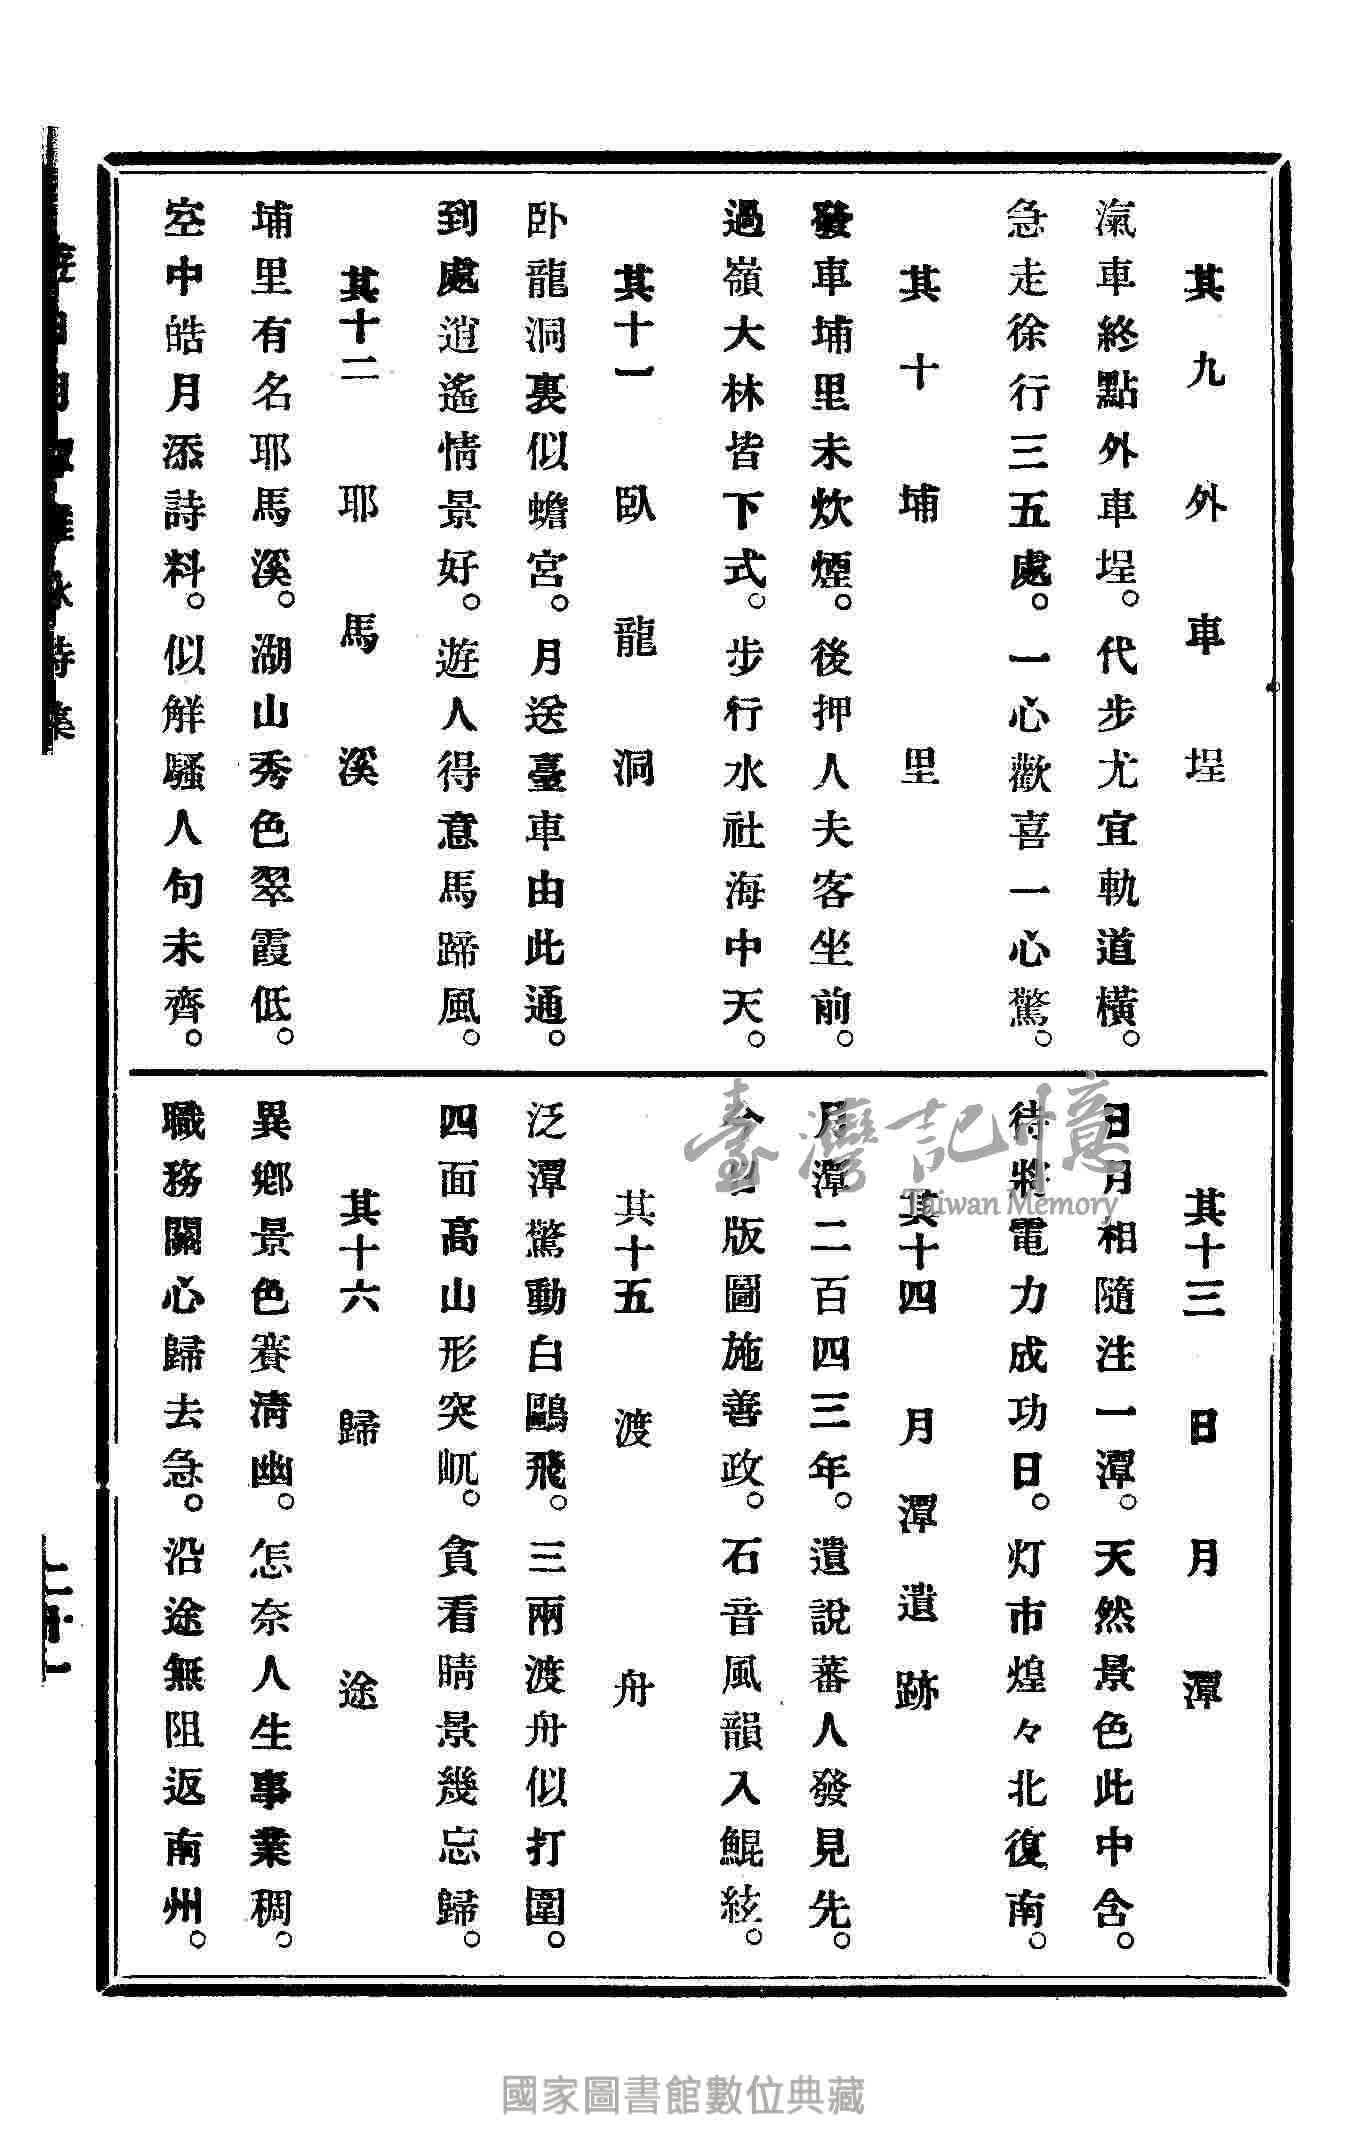 其九 外車埕
氣車終點外車埕。代步尤宜軌道橫。
急走徐行三五處。一心歡喜一心驚。
其十 埔里
發車埔里未炊煙。後押人夫客坐前。
過嶺大林皆下式。步行水社海中天。
其十一 臥龍洞
卧龍洞裏似蟾宮。月送臺車由此通。
到處逍遙情景好。遊人得意馬蹄風。
其十二 耶馬溪
埔里有名耶馬溪。湖山秀色翠霞低。
空中皓月添詩料。似解騷人句未齊。
其十三 日月潭
日月相隨注一潭。天然景色此中含。
待將電力成功日。灯市煌々北復南。
其十四 月潭遺跡
月潭二百四三年。遺說蕃人發見先。
今日版圖施善政。石音風韻入鯤絃。
其十五 渡舟
泛潭驚動白鷗飛。三兩渡舟似打圍。
四面高山形突屼。貪看晴景幾忘歸。
其十六 歸途
異鄉景色賽清幽。怎奈人生事業稠。
職務關心歸去急。沿途無阻返南州。
詩集
臺灣記憶
Taiwan Memory
國家圖書館數位典藏